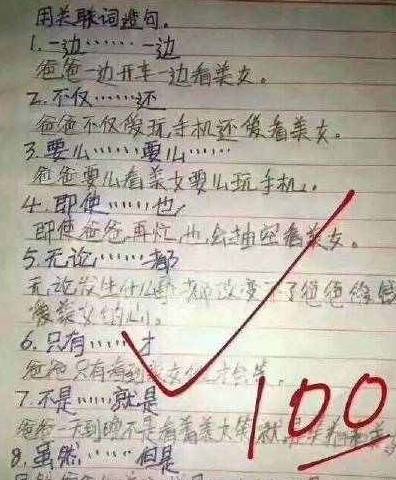 用关联词造句。
1.一边……一边
爸爸一边开车一边看美女。
2.不仅……还
爸爸不仅爱玩手机还爱看美女。
3.要么……要么……
爸爸要么看美女要么玩手机。
4.即使……也
即使爸爸再忙,也会抽空看美女。
5.无论……都
无论发生什么事都改变不了爸爸
美女的心。
6.只有……才
爸爸只有看到美女才会笑。
7.不是……就是
爸爸一天到晚不是看着美女笑就是
8.虽然……但是
100